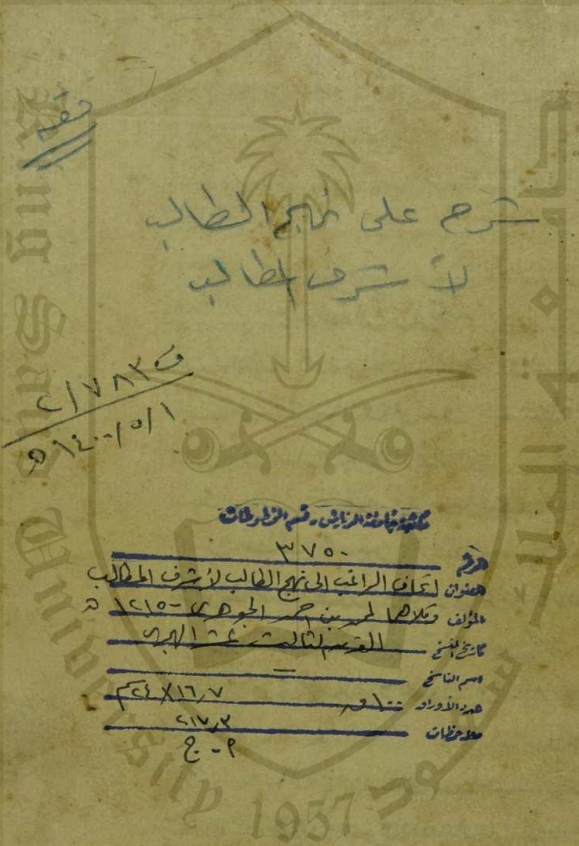 فقه
شرح على نهج الطالب
لأشرف المطالب
ف ٢/٧٨٣
١٤٠٠/٥/١ هـ
مكتبة جامعة الرياض - قسم المخطوطات
الرقم ٣٧٥٠
العنوان اتحاف الراغب الى نهج الطالب لأشرف المطالب
المؤلف وكلاهما لمحمد بن احمد الجوهرى - ١٢١٥ هـ
تاريخ النسخ القرن الثالث عشر الهجرى
اسم الناسخ
عدد الأوراق ١٠٠ ق ٢٤ × ١٦٫٧ سم
ملاحظات ٢١٧٫٣
م - ج
King Saud University
جامعة الملك سعود
1957